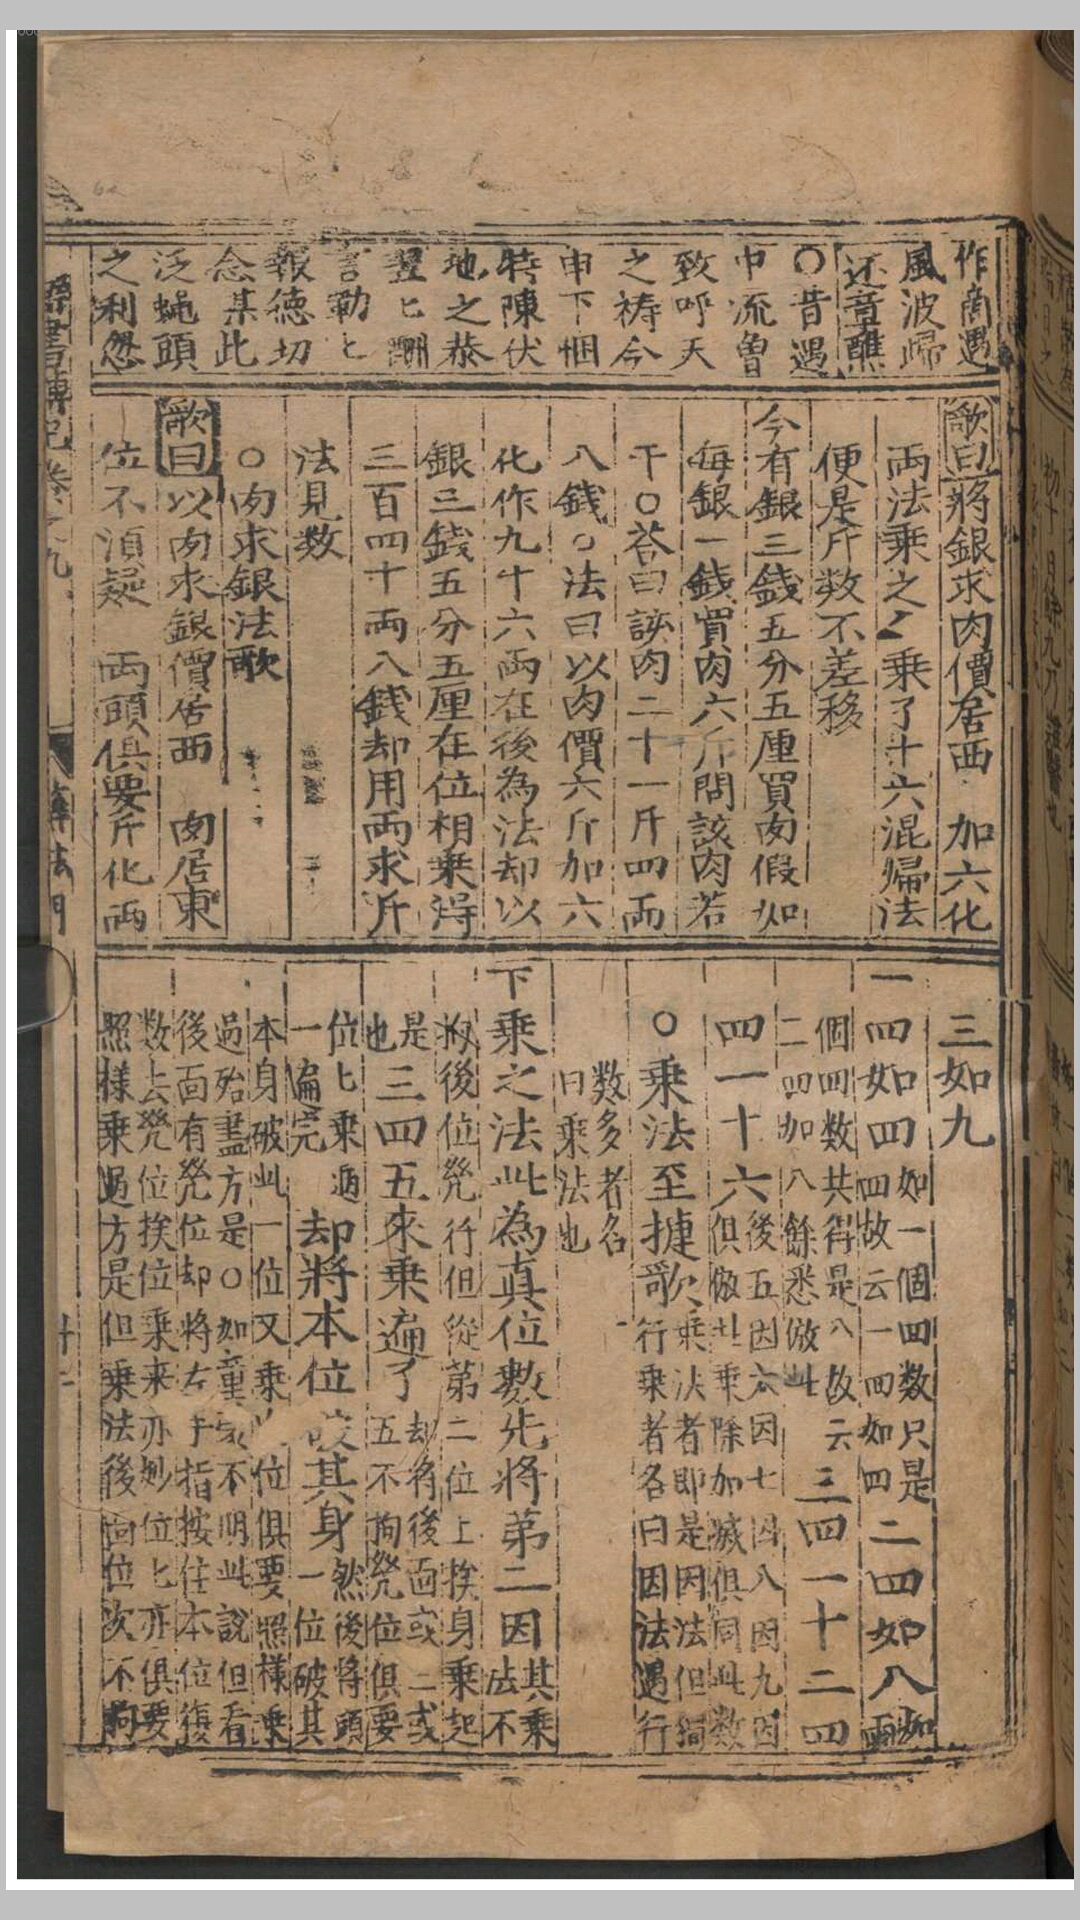 作商遇
風波歸
还童醮
〇昔遇
中流魯
致呼天
之祷今
申下悃
特陳伏
地之恭
翌匕酬
言勒匕
報德切
念某此
泛蝇頭
之利忽
歌曰將銀求肉價居西 加六化
兩法乗之乗了十六混歸法
便是斤数不差移
今有銀三錢五分五厘買肉假如
每銀一錢買肉六斤問該肉若
干〇荅曰該肉二十一斤四兩
八錢〇法曰以肉價六斤加六
化作九十六兩在後為法却以
銀三錢五分五厘在位相乗淂
三百四十兩八錢却用兩求斤
法見数
〇肉求銀法歌
歌曰以肉求銀價居西 肉居東
位不湏疑 兩頭俱要斤化兩
三如九
一四如四如一個四数只是四故云一四如四二四如八如兩
個四数共得是八故云二四加八餘悉倣此三四一十二四
四一十六後五因六因七因八因九因俱倣此乗除加减俱同此数
〇乗法至捷歌乗法者即是因法但遇行乗者各曰因法遇行
数多者名曰乗法也
下乗之法此為真位數先將第二因其乗法不
拘後位幾行但從第二位上挨身乗起
是也三四五來乗遍了却将後面或二或五不拘幾位俱要
位匕乗過一遍完却將本位 其身然後将頭一位破其
本身破此一位又乗 位俱要照樣乗
過殆盡方是〇如童 不明此說但看後面有幾位却將左手指按住本位復
数去幾位挨位乗来亦 位匕亦俱要照様乗過方是但乗法後 位次不拘